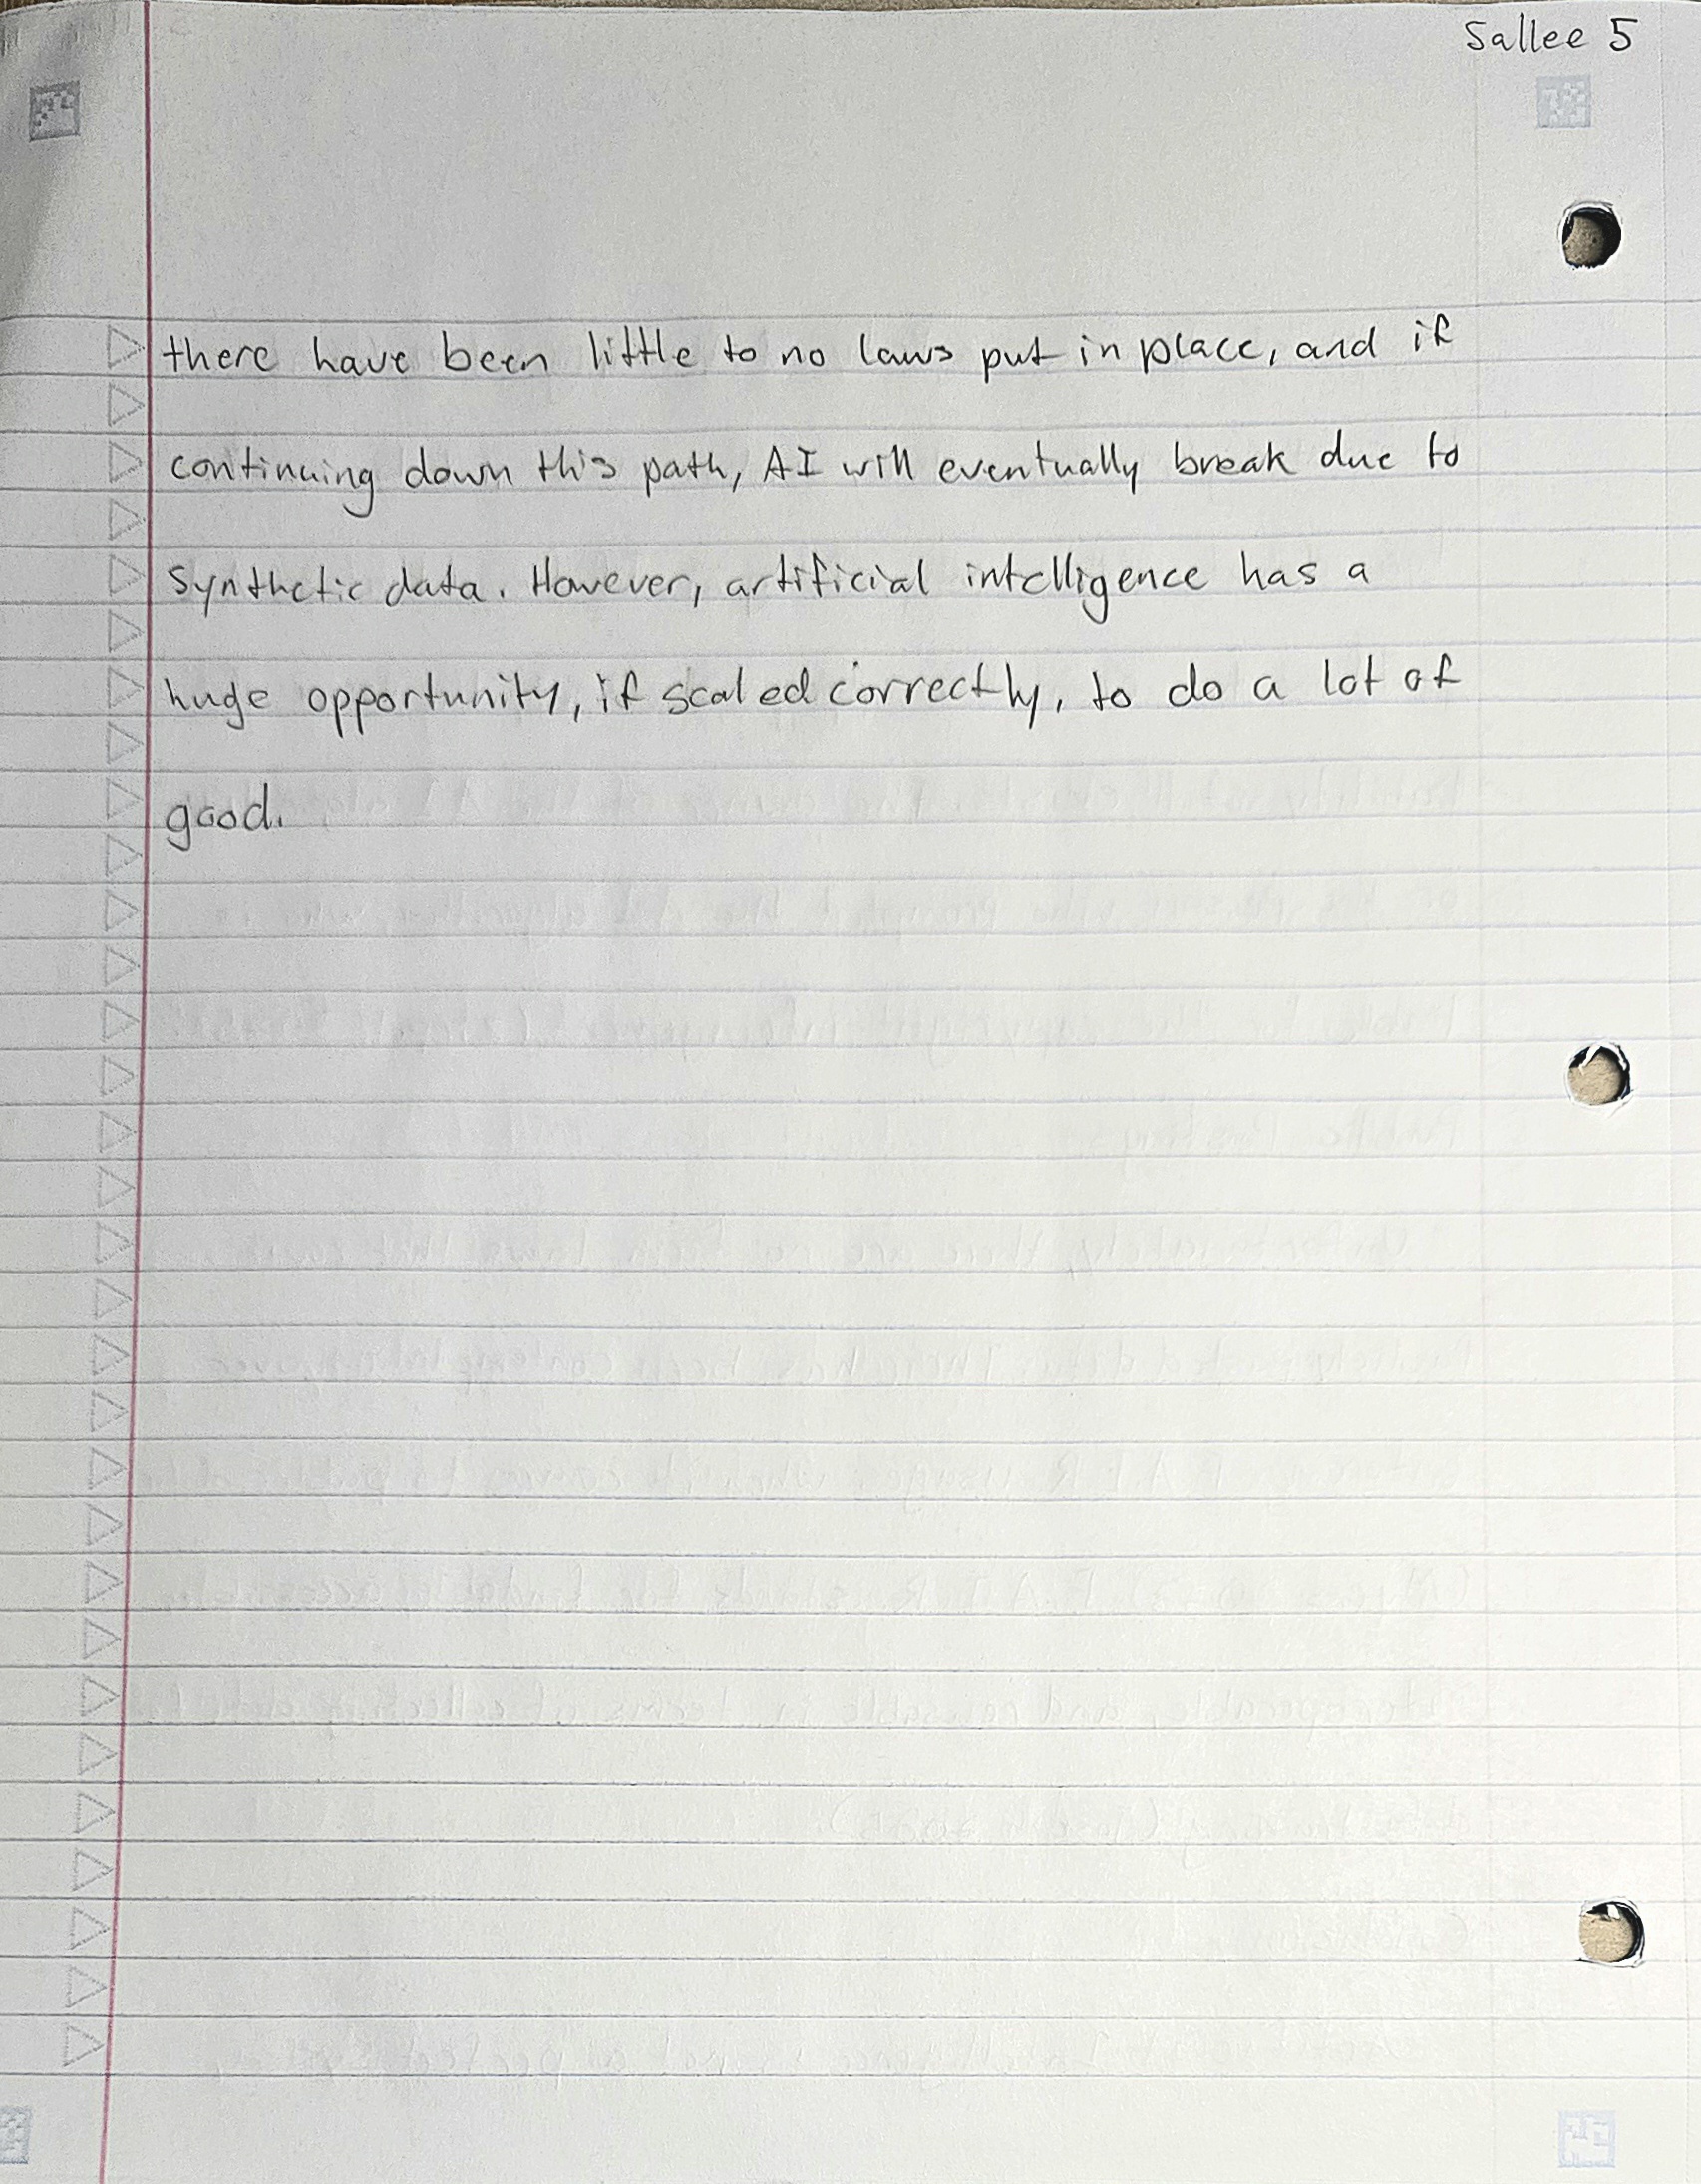 Sallee 5
there have been little to no laws put in place, and if
continuing down this path, AI will eventually break due to
synthetic data. However, artificial intelligence has a
huge opportunity, if scaled correctly, to do a lot of
good.